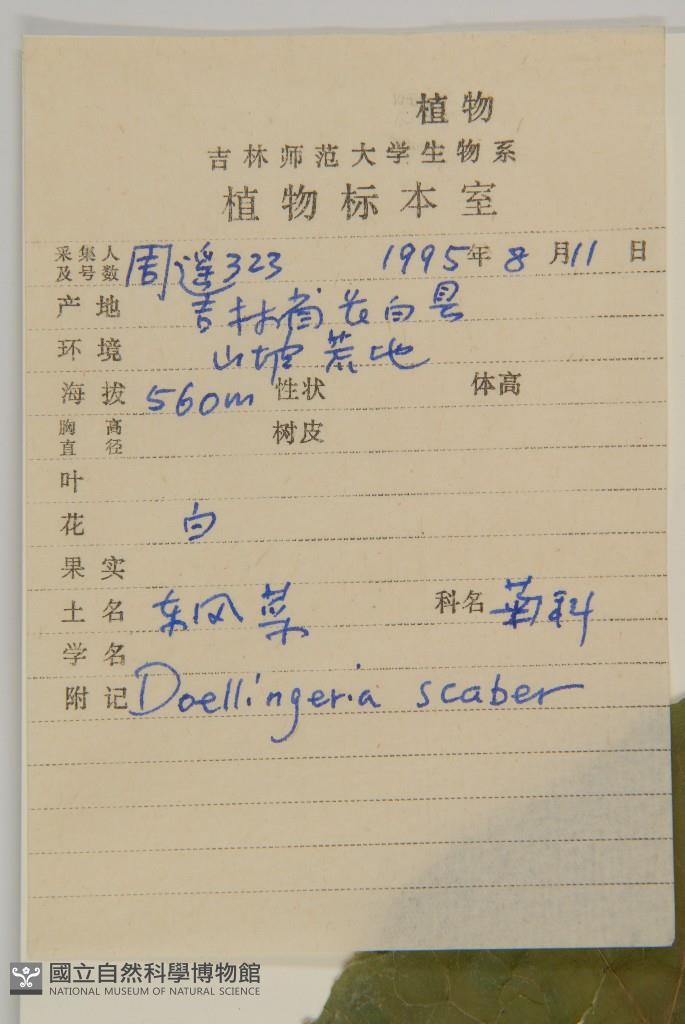 植物
吉林师范大学生物系
植物标本室
采集人及号数 周遥323 1995年8月11日
产地 吉林省长白县
环境 山坡荒地
海拔 560m 性状 体高
胸高直径 树皮
叶
花 白
果实
土名 东风菜 科名 菊科
学名
附记 Doellingeria scaber
國立自然科學博物館
NATIONAL MUSEUM OF NATURAL SCIENCE